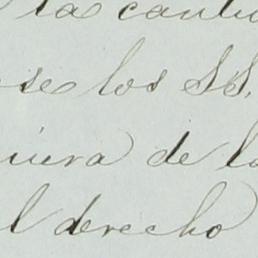 la cantid
se los SS.
uiera de la
l derecho